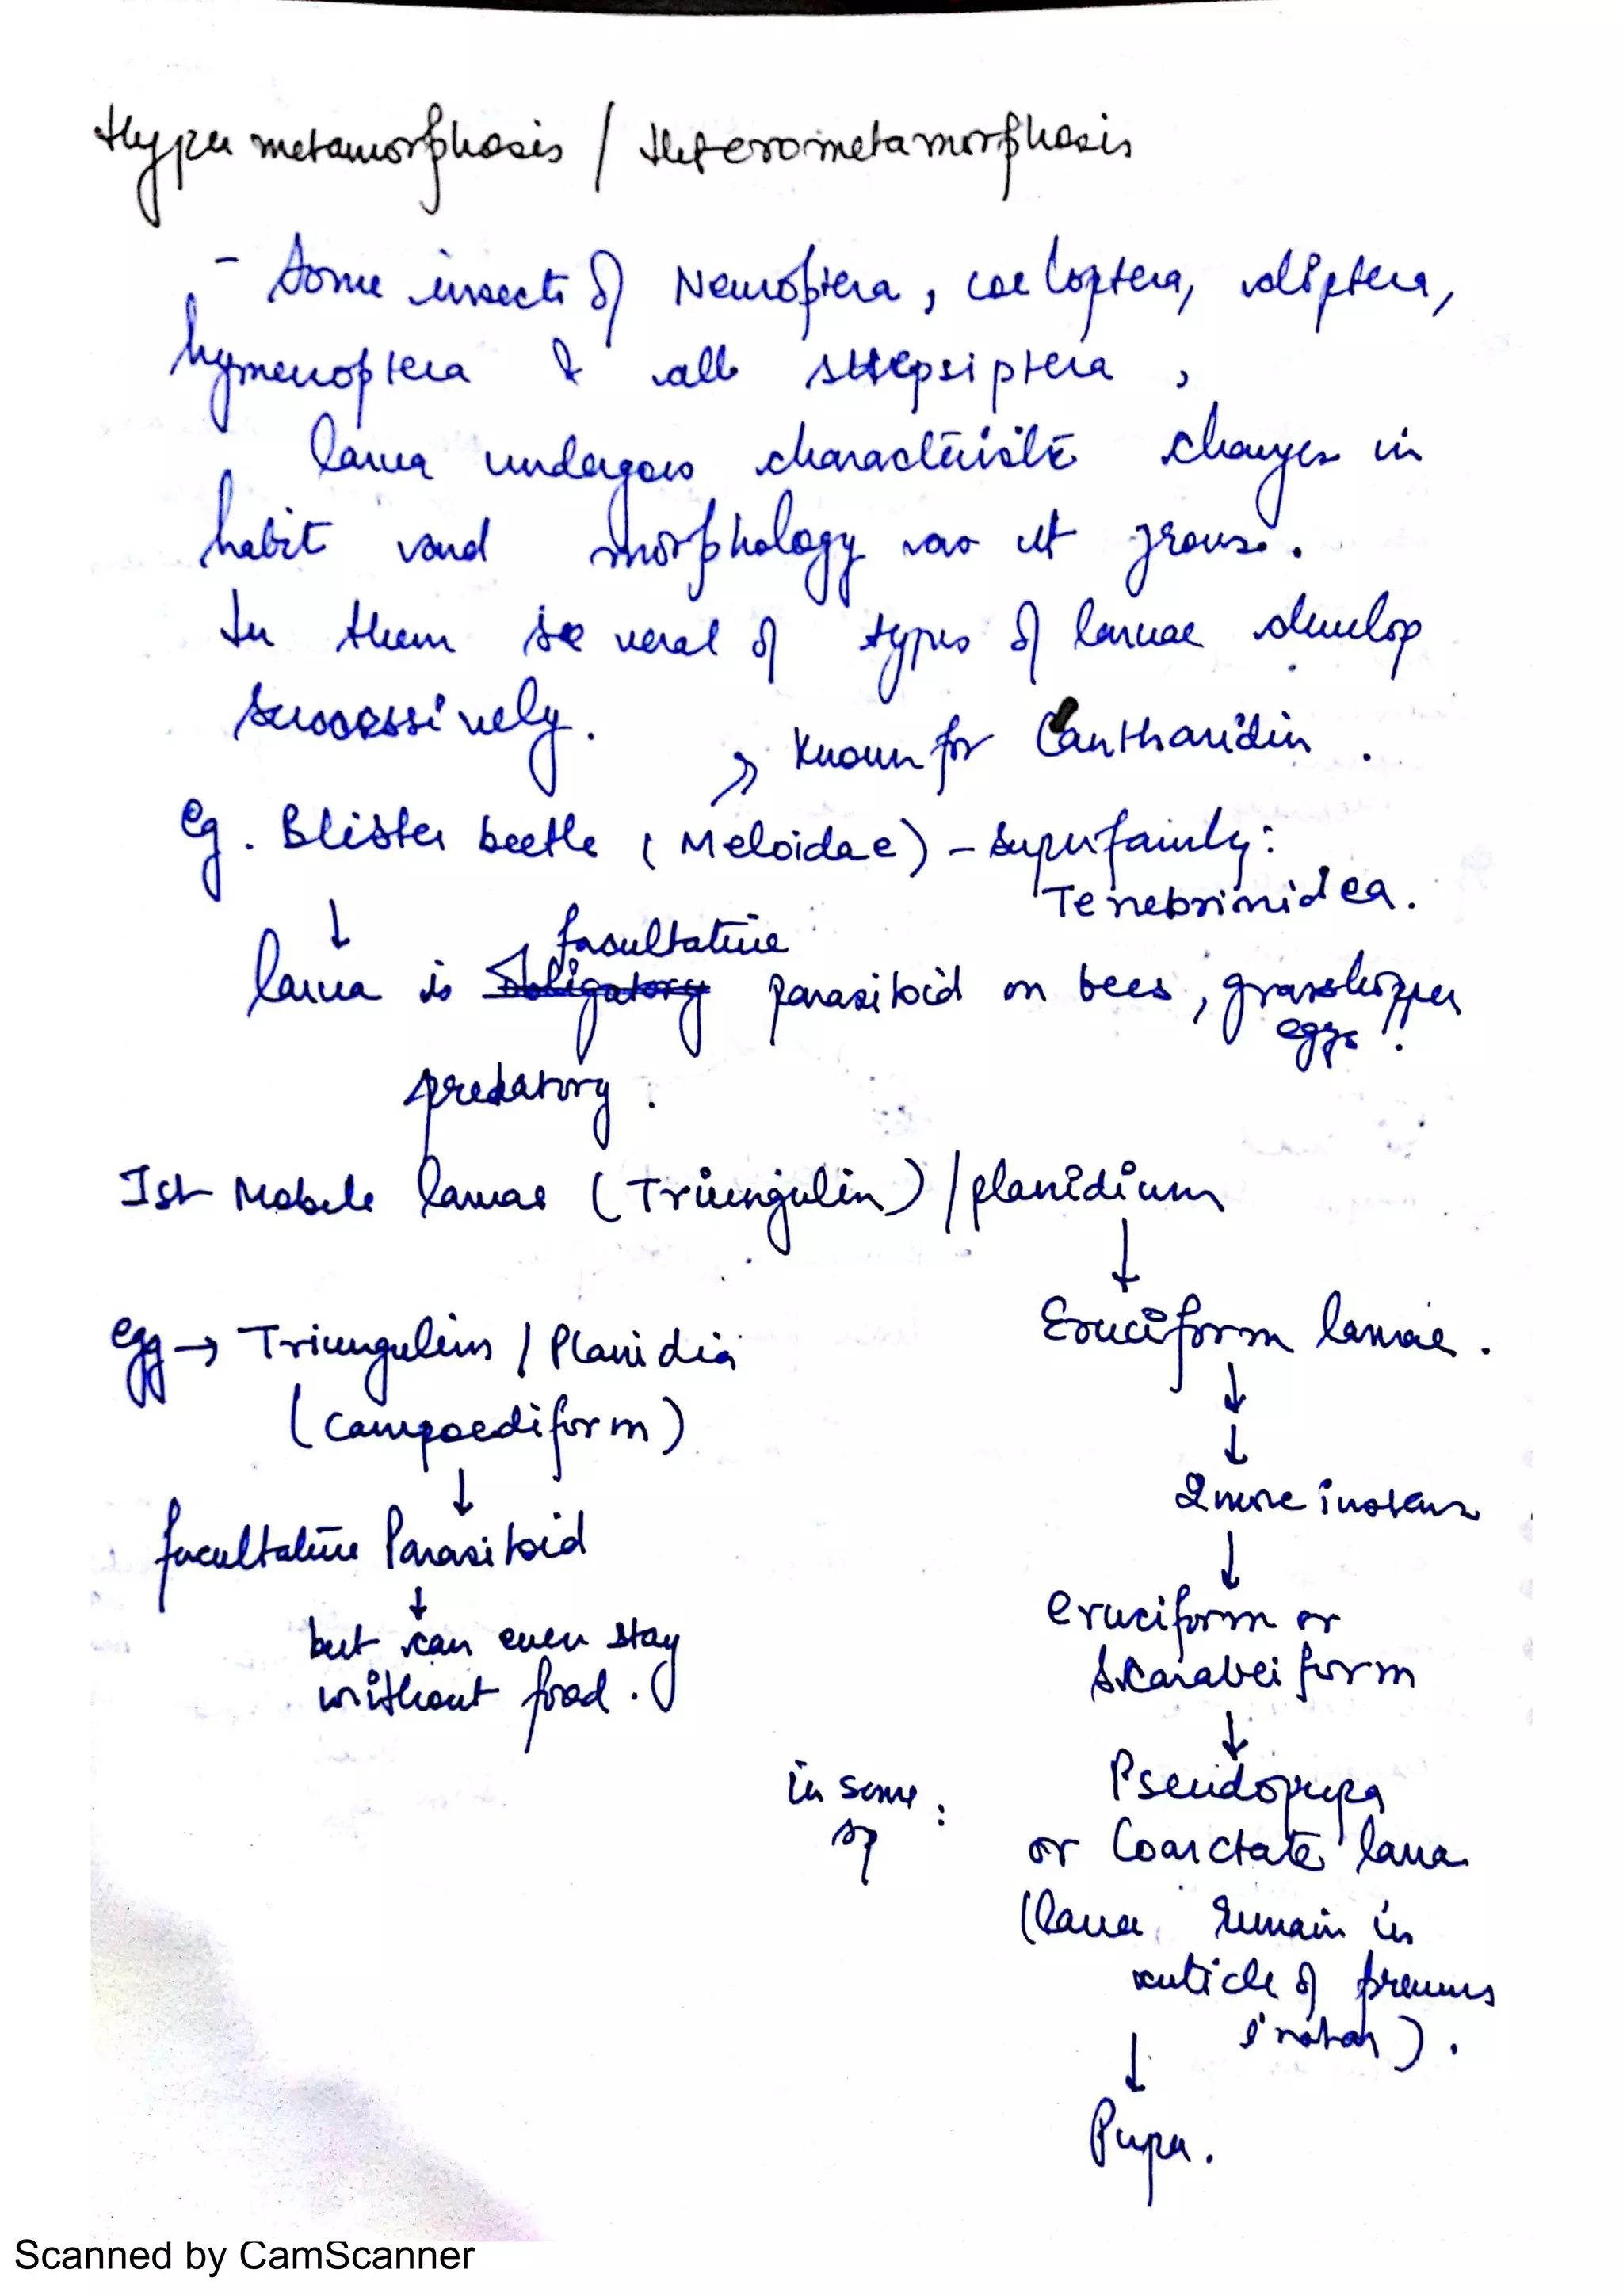 Hyper metamorphosis / Heterometamorphosis
- Some insects of Neuroptera, coeloptera, diptera,
hymenoptera & all strepsiptera,
larva undergoes characteristic changes in
habit and morphology as it grows.
In them several of types of larvae develop
successively.
→ Known for Cantharidin.
eg. Blister beetle (Meloidae) - superfamily:
Tenebrinidea.
↓
facultative
larva is obligatory parasitoid on bees, grasshopper
eggs.
predatory.
Ist Mobile larvae (Triungulin) / planidium
↓
egg → Triungulins / Planidia
Eruciform larvae.
(campoediform)
↓
↓
2 more instars
↓
facultative Parasitoid
↓
↓
but can even stay
without food.
eruciform or
skarabeiform
↓
in some:
sp
Pseudopupa
or Coarctate larva
(larva remain in
cuticle of previous
instar).
↓
Pupa.
Scanned by CamScanner